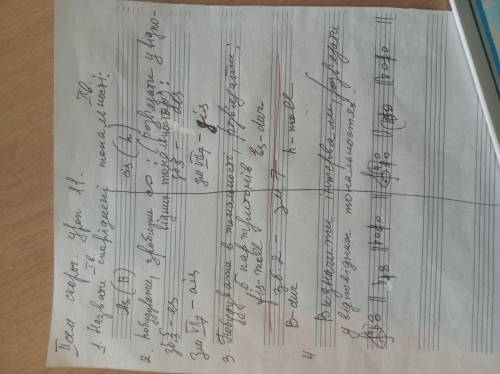 II сем сюори. урок 11.
1. Назвати споріднені тональності:
Iв. IIв.
As (B) cis (h)
2. Побудувати, зробити ео; розвʼязати у відпо-
відних тональностях:
зб5 – es зб3 – des
Зм VII7 – ais зм VII7 – gis
3. Побудувати в тональності, розвʼязати:
5 пар тритонів
fis-moll Es-dur
зб 2 – зм 7
B-dur h-moll
4. Визначити інтервали, розвʼязати
у відповідних тональностях: